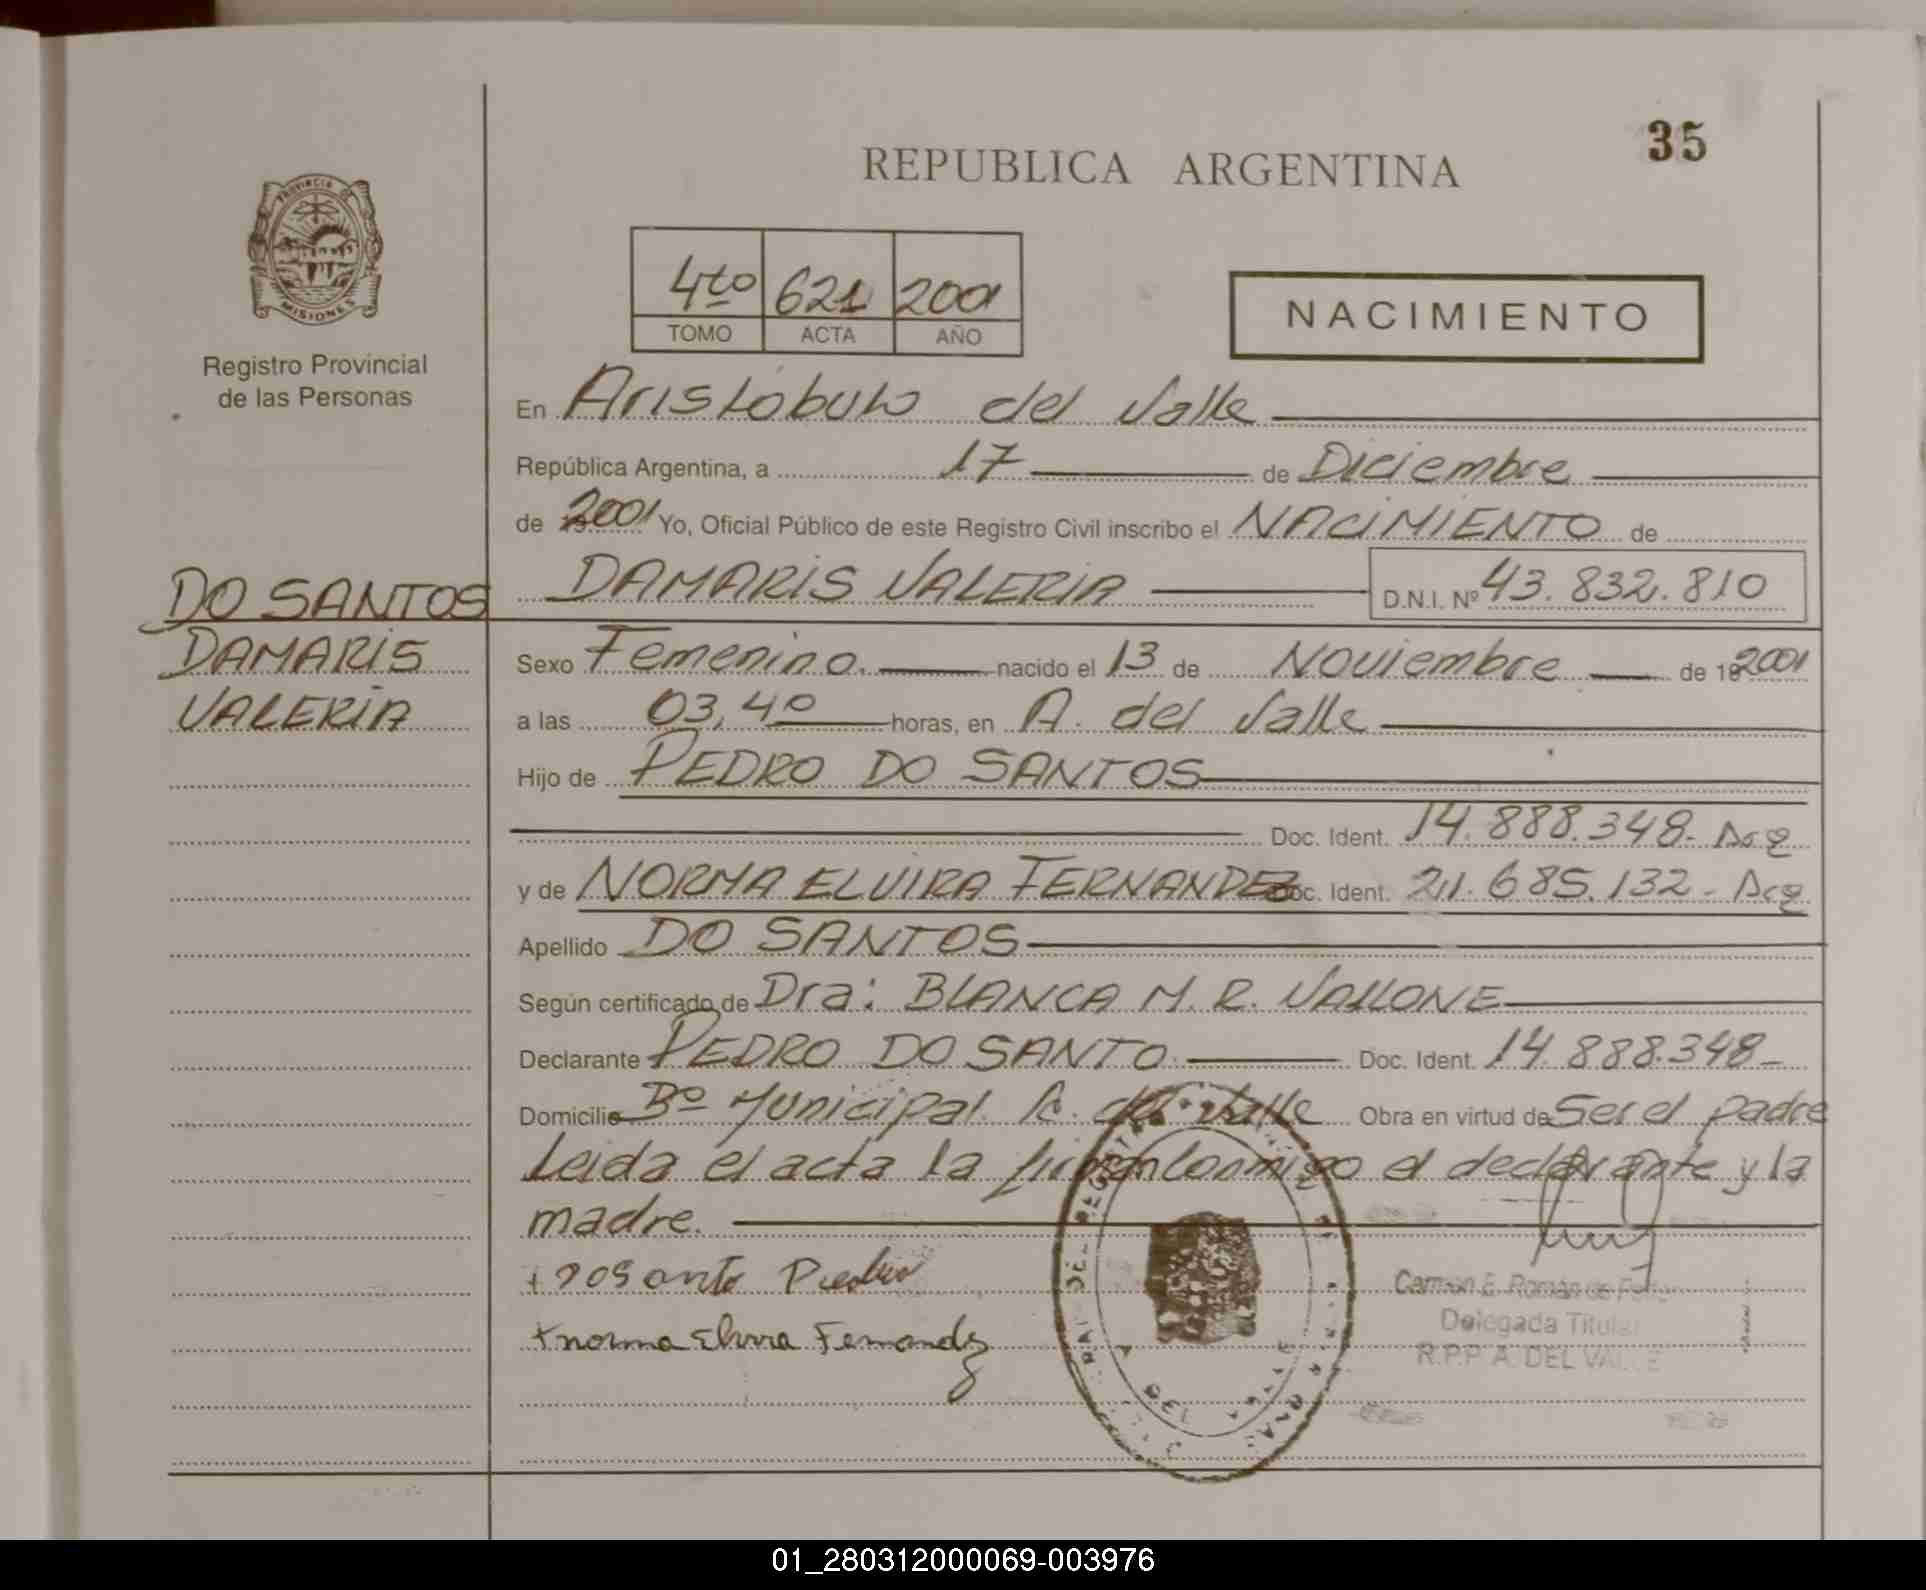 35
REPUBLICA ARGENTINA
PROVINCIA DE
MISIONES
Registro Provincial
de las Personas
4to 621 2001
TOMO ACTA AÑO
NACIMIENTO
En Aristóbulo del Valle
República Argentina, a 17 de Diciembre
de 2001 Yo, Oficial Público de este Registro Civil inscribo el NACIMIENTO de
DO SANTOS
DAMARIS
VALERIA
DAMARIS VALERIA D.N.I. Nº 43.832.810
Sexo Femenino. nacido el 13 de Noviembre de 2001
a las 03,40 horas, en A. del Valle
Hijo de PEDRO DO SANTOS
Doc. Ident. 14.888.348-
y de NORMA ELVIRA FERNANDEZ Doc. Ident. 21.685.132-
Apellido DO SANTOS
Según certificado de Dra: BLANCA M. R. VALLONE
Declarante PEDRO DO SANTO. Doc. Ident. 14.888.348-
Domicilio Bº Municipal. A. del Valle Obra en virtud de Ser el padre
Leida el acta la firman conmigo el declarante y la
madre.
Dosanto Pedro
norma Elvira Fernandez
Delegada Titular
R.P.P. A. DEL VALLE
01_280312000069-003976